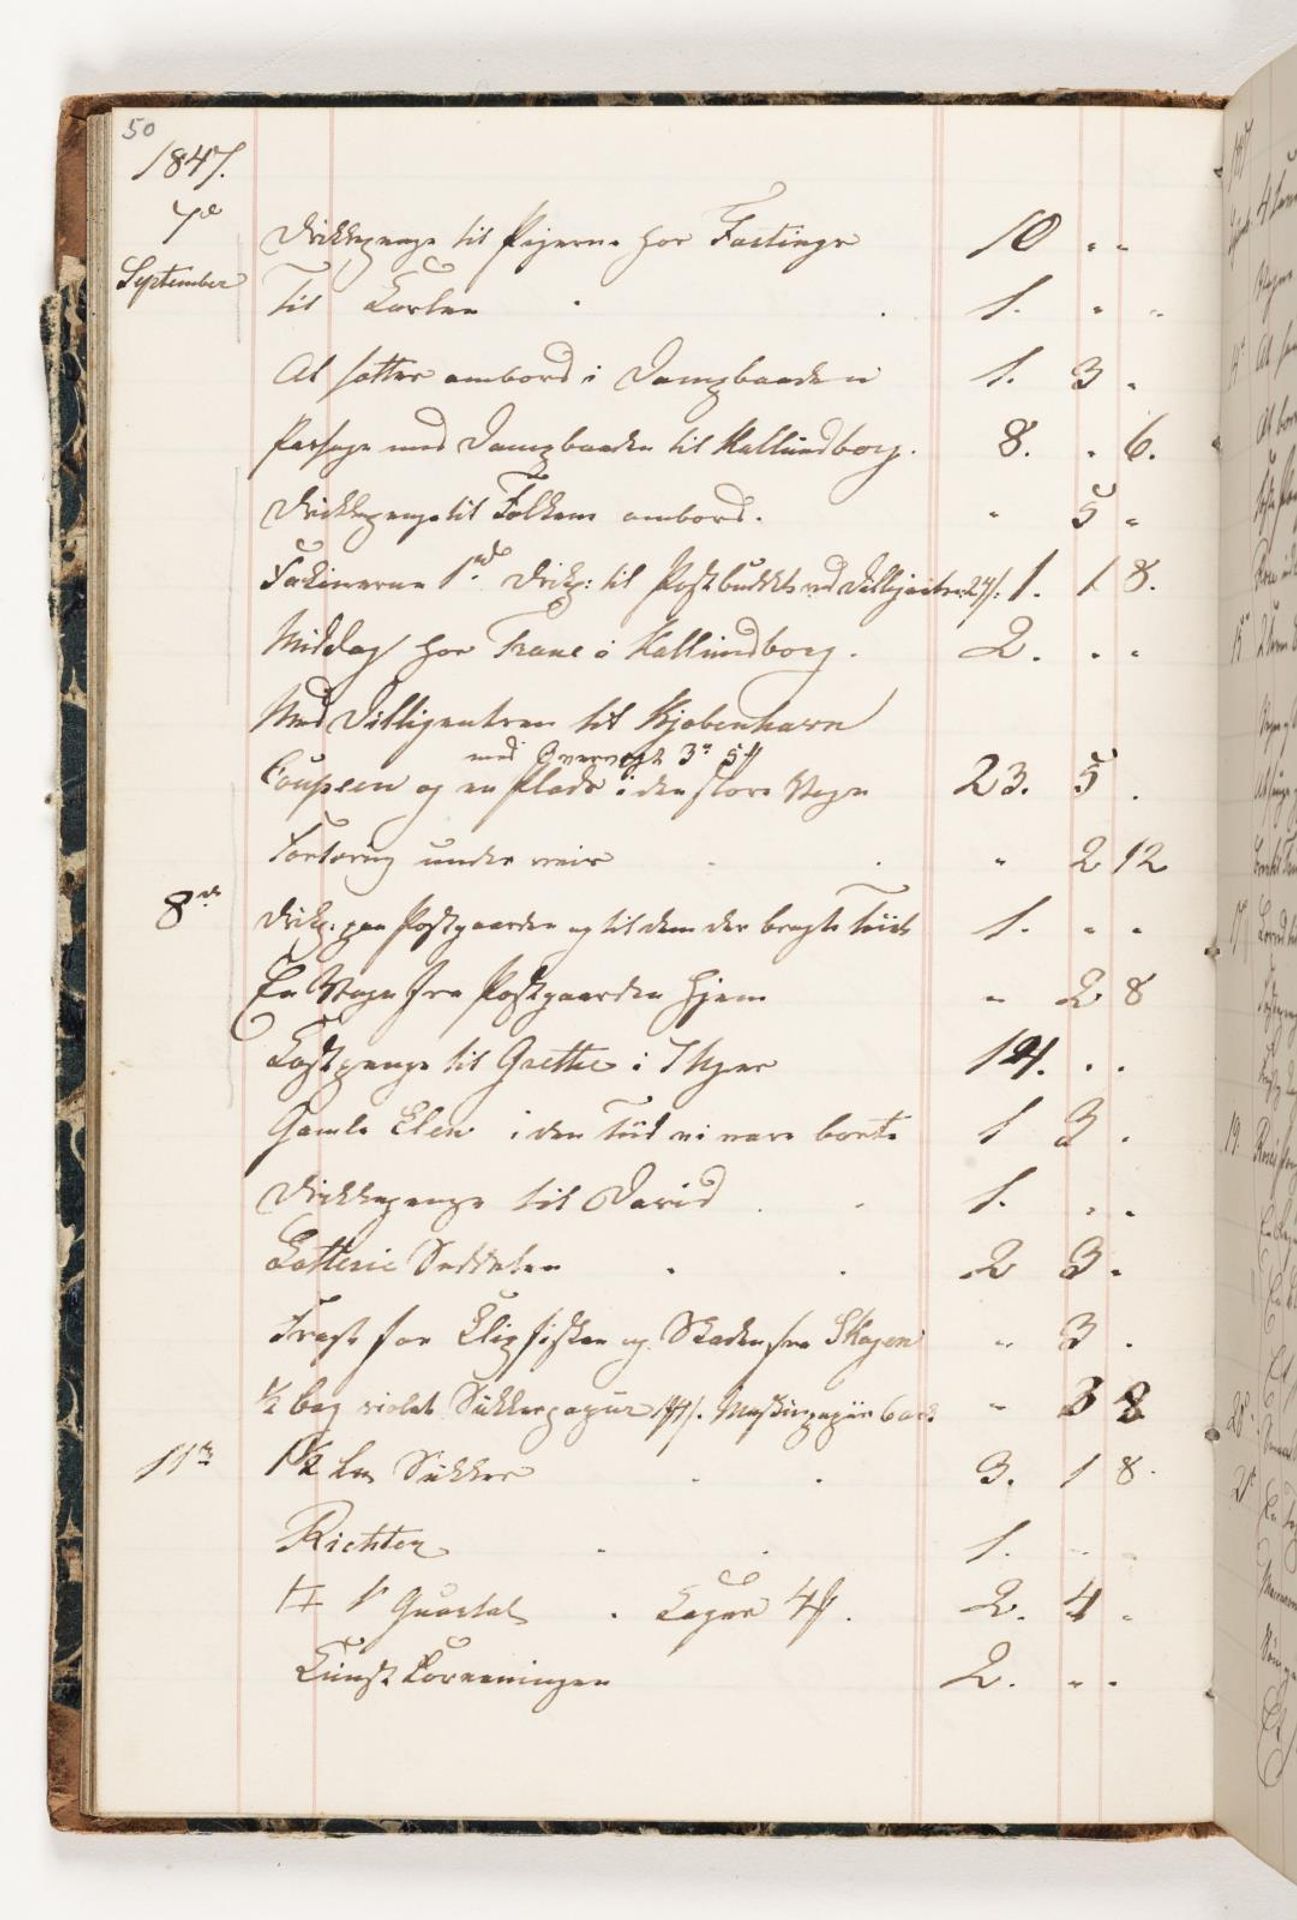 50
1847.
7de Drikkepenge til Pigerne hos Fastings 10 " "
September Til Karlen 1. " "
At sættes ombord i Dampbaaden 1. 3 "
Passage med Dampbaaden til Kallundborg. 8. " 6.
Drikkepenge til Folkene ombord. " 5 "
1rd Drikp: til Postbudet ved Dilligencen 24s. 1. 1 8.
Middag hos Trane i Kallundborg. 2. " "
Med Dilligencen til Kjøbenhavn
med Overvægt 3" 5
Coupeen og en Plads i den store Vogn 23. 5 .
Fortæring under veis " 2 12
8de Drikp: paa Postgaarden og til dem der bragte Tøiet 1. " "
En Vogn fra Postgaarden hjem " 2 8
Kostpenge til Grethe i Uger 14. . .
Gamle Elen i den Tiid vi vare borte 1 3 .
Drikkepenge til David 1. " "
Lotterie Seddelen 2 3 .
Fragt for Klipfisken og Skaden fra Skagen " 3 .
1/2 Bog violet Sukkerpapiir Maskinpapiir 6 Ark " 3 8
11te Sukker 3. 1 8.
Richter 1. " "
1t Quartal . Kager 4 . 2. 4 "
Kunstforeeningen 2. " "